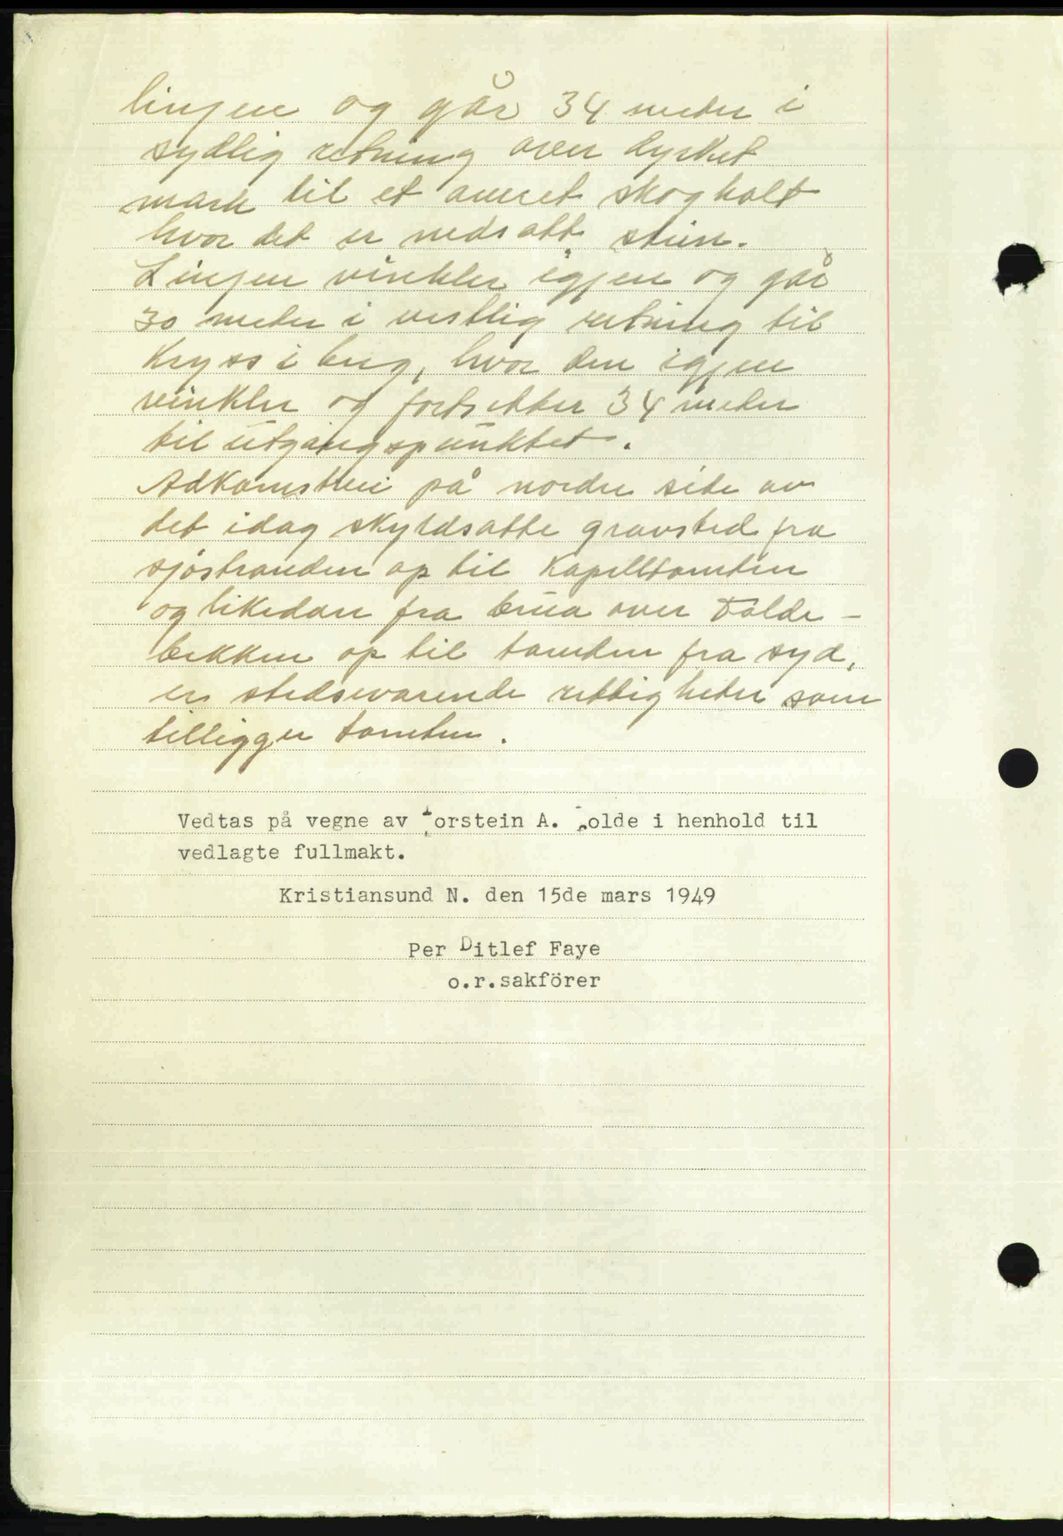 linjen og går 34 meter i
sydlig retning over dyrket
mark til et annet skogholt
hvor det er nedsatt sten.
Linjen vinkler igjen og går
30 meter i vestlig retning til
kryss i berg, hvor den igjen
vinkler og fortsetter 34 meter
til utgangspunktet.
Adkomstvei på nordre side av
det idag skyldsatte gravsted fra
sjøstranden op til Kapelltomten
og likedan fra brua over Folde-
bekken op til tomten fra syd,
er stedsevarende rettigheter som
tilligger tomten.
Vedtas på vegne av Torstein A. Folde i henhold til
vedlagte fullmakt.
Kristiansund N. den 15de mars 1949
Per Ditlef Faye
o.r.sakförer